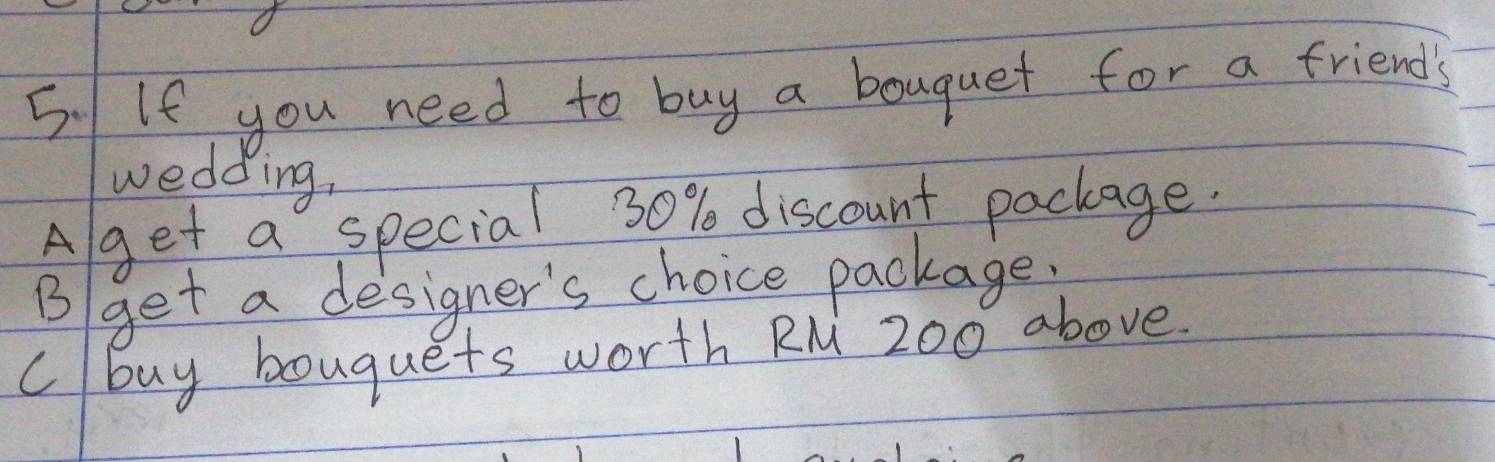 5. If you need to buy a bouquet for a friend's
wedding,
A get a special 30% discount package.
B get a designer's choice package.
C buy bouquets worth RM 200 above.